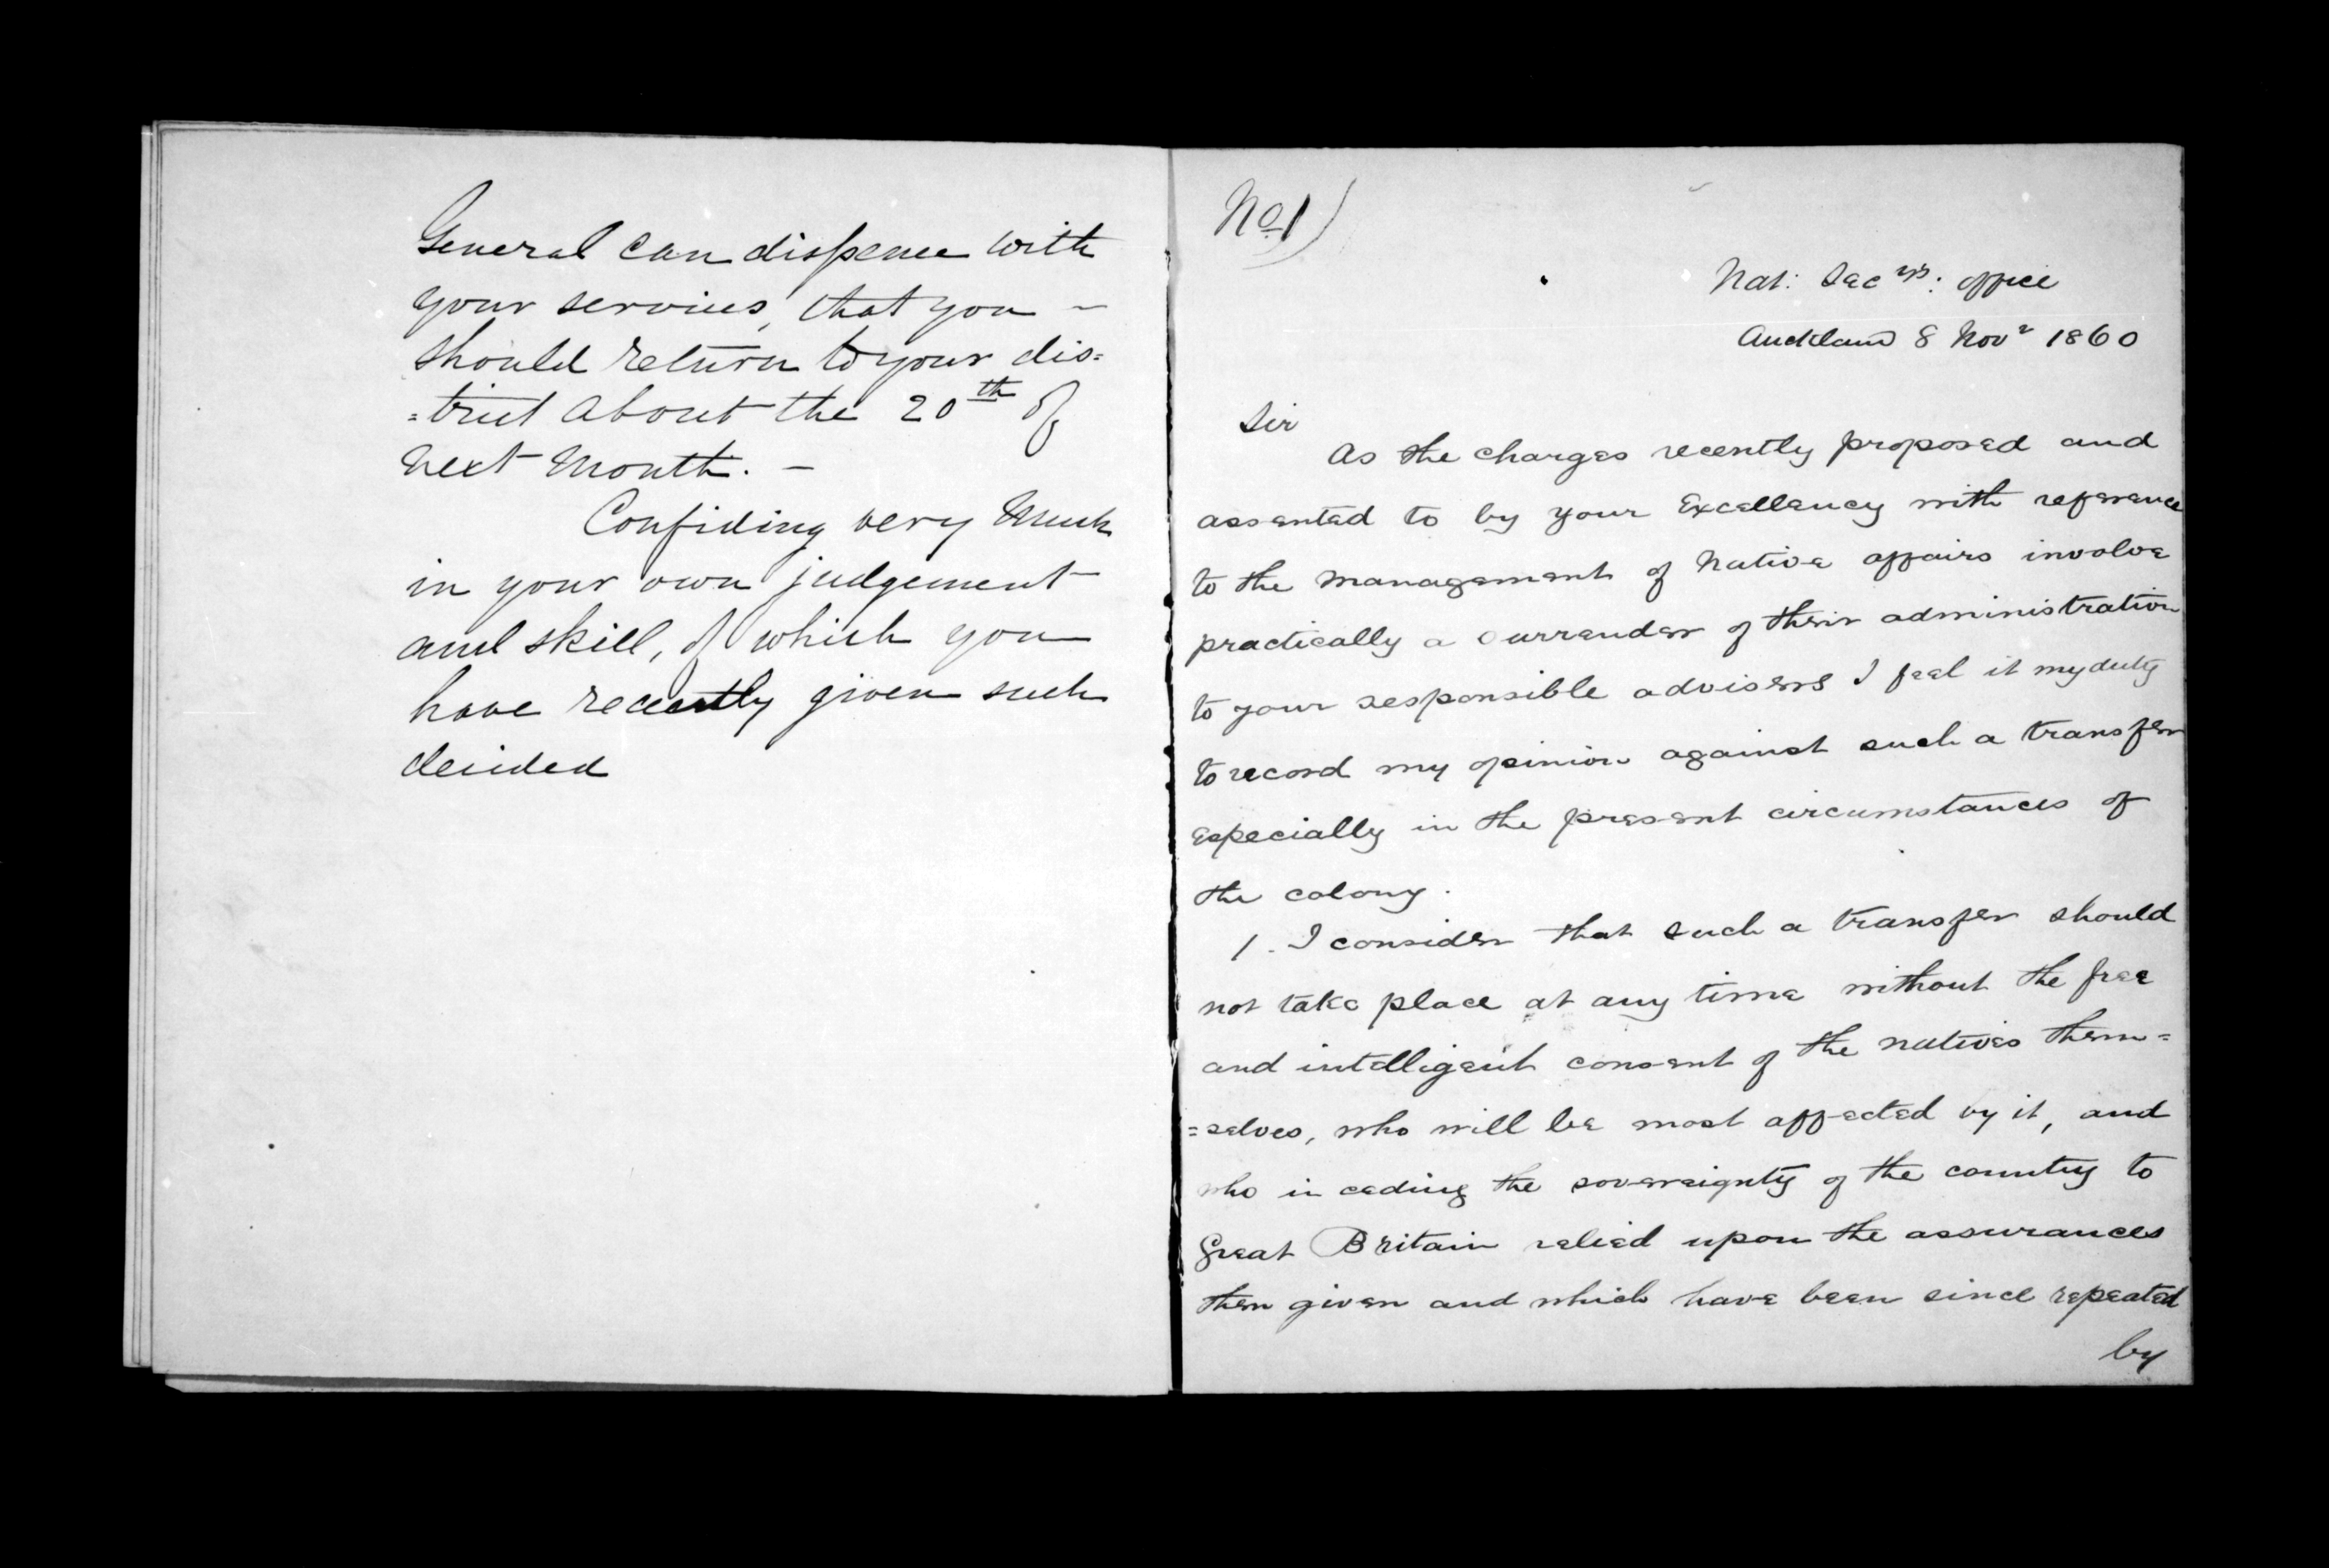 General can dispense with
your services, that you -
should return to your dis=
=trict about the 20th of
next Month. -
Confiding very Much
in your own judgement
and skill, of which you
have recently given such
decided
No. 1)
Nat: Secry's: office
Auckland 8 Novr 1860
Sir
As the charges recently proposed and
assented to by your Excellency with reference
to the management of Native affairs involve
practically a surrender of their administration
to your responsible advisers I feel it my duty
to record my opinion against such a transfer
especially in the present circumstances of
the colony.
1. I consider that such a transfer should
not take place at any time without the free
and intelligent consent of the natives them=
=selves, who will be most affected by it, and
who in ceding the sovereignty of the country to
Great Britain relied upon the assurances
then given and which have been since repeated
by